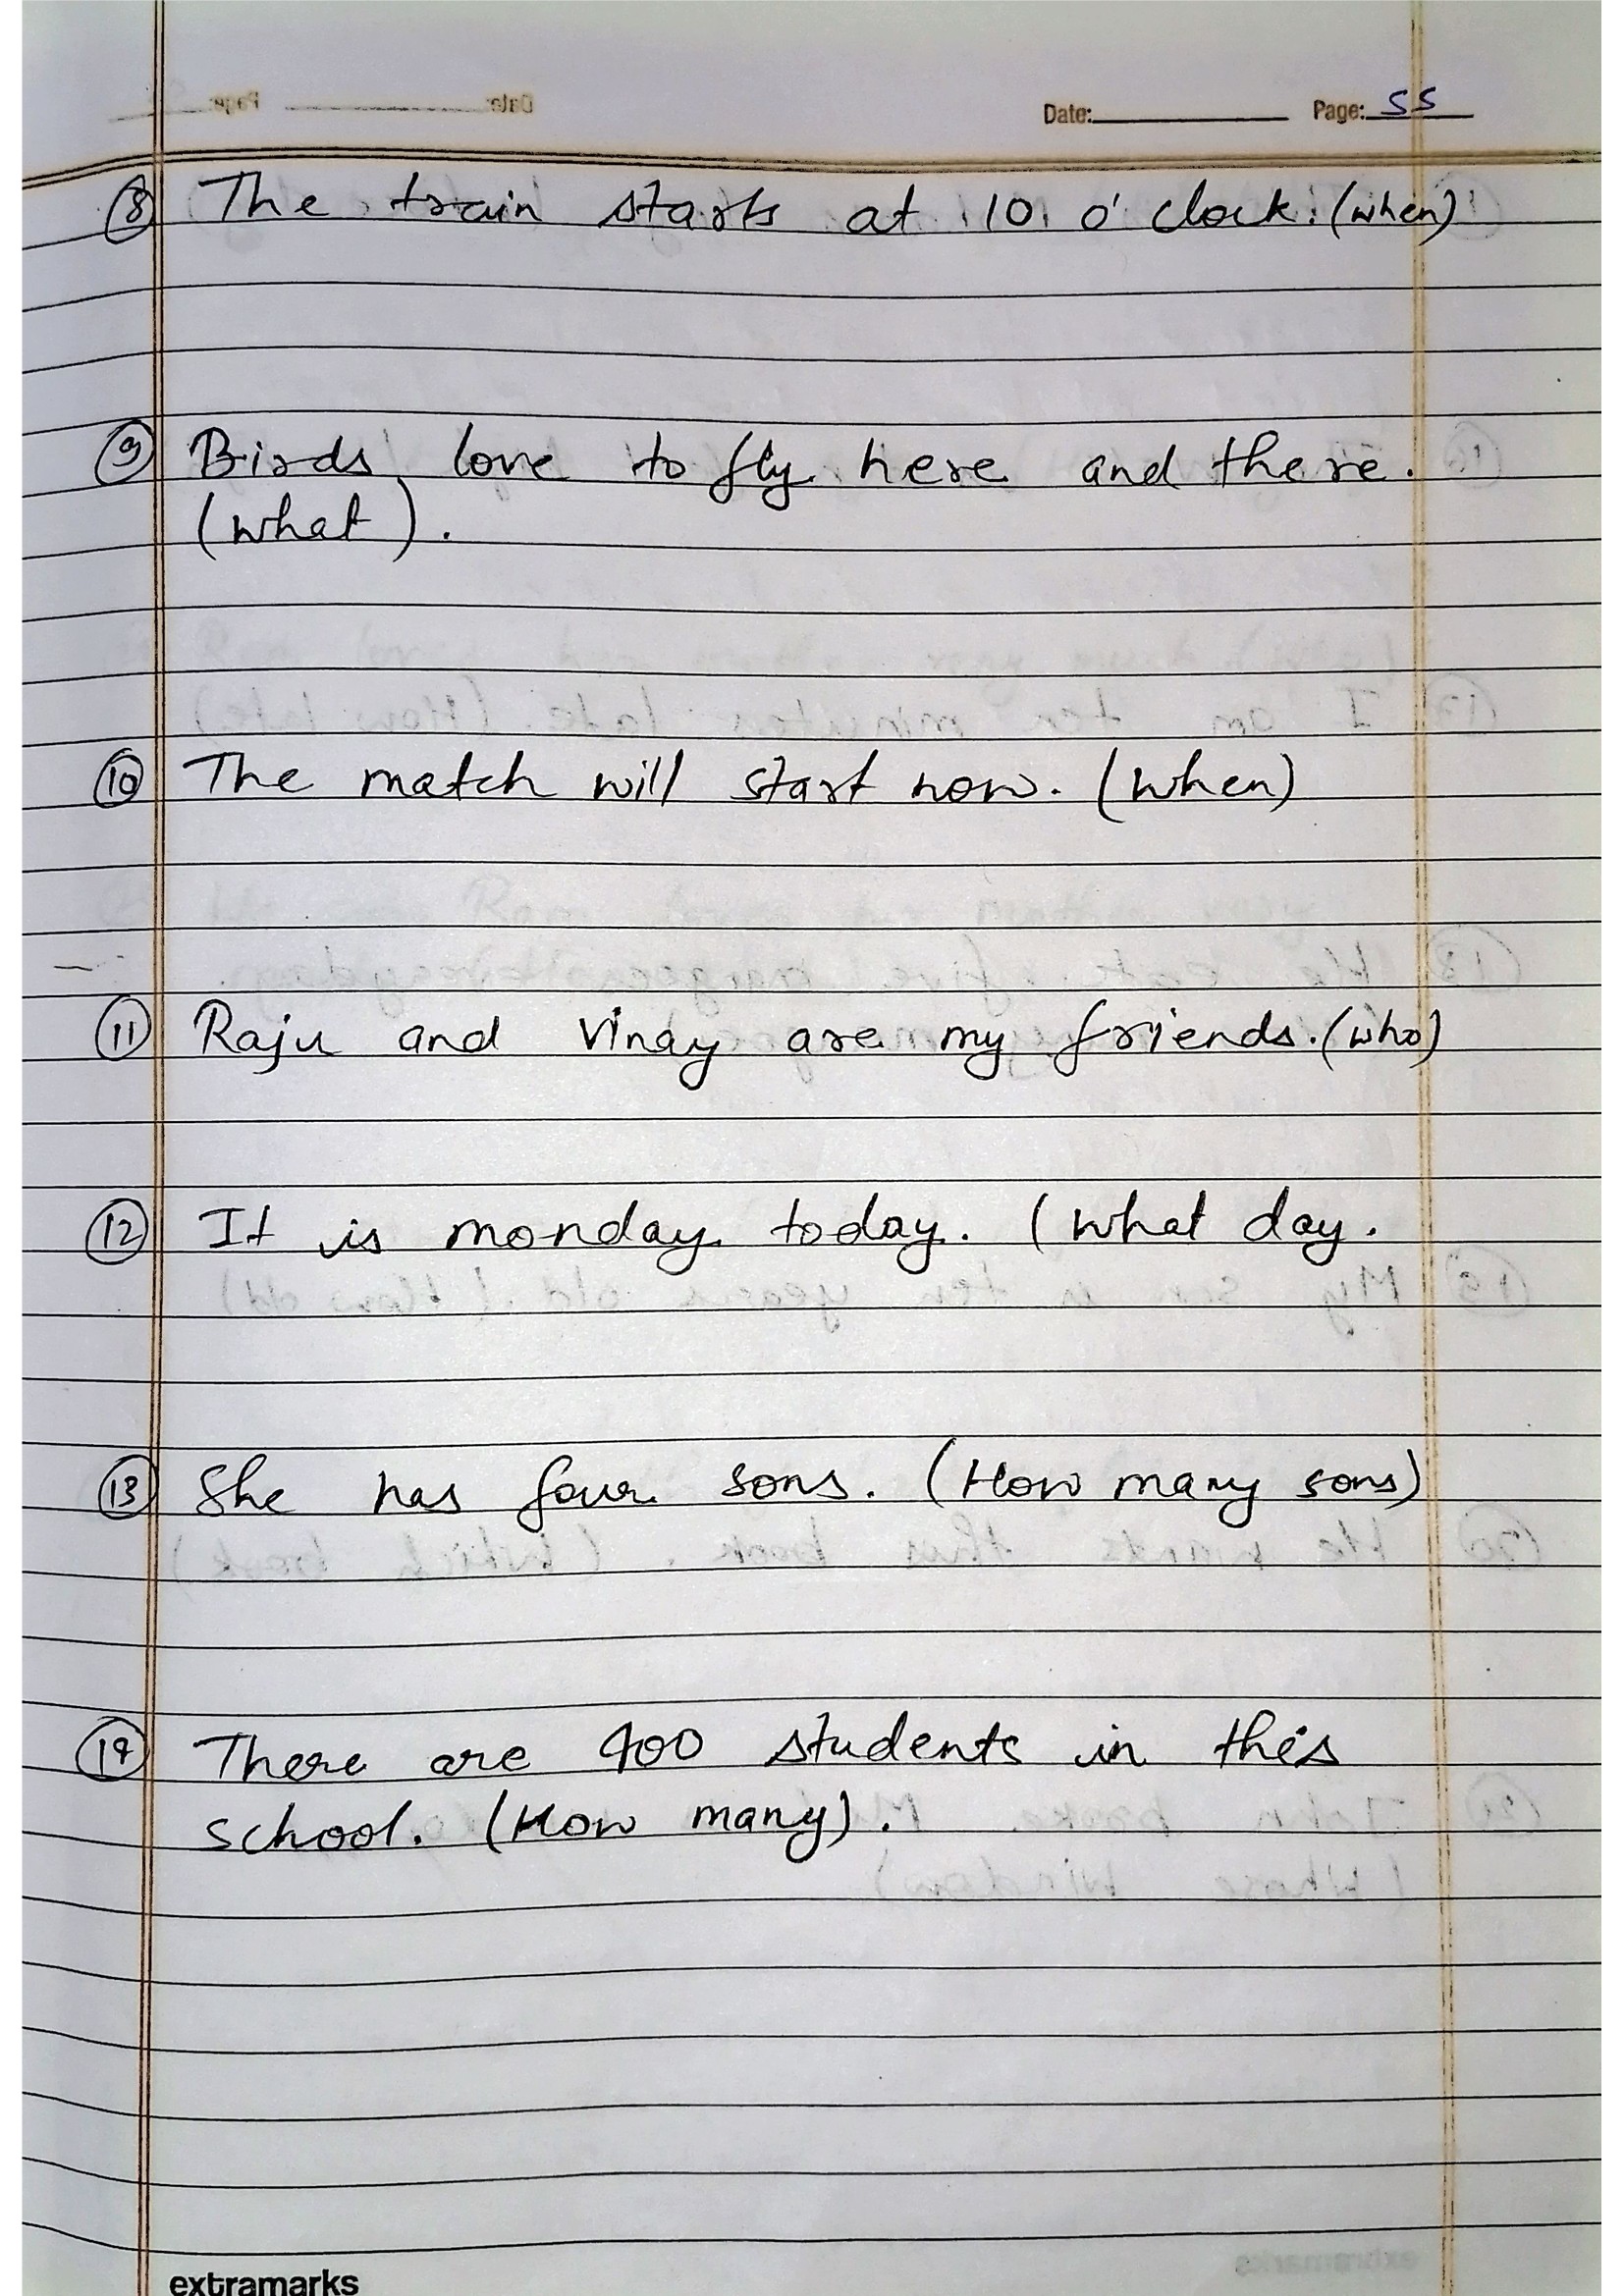 Date: Page: 55
⑧ The train starts at 10 o'clock. (when)
⑨ Birds love to fly here and there.
(what).
⑩ The match will start now. (when)
⑪ Raju and Vinay are my friends. (who)
⑫ It is monday today. (what day.
⑬ She has four sons. (How many sons)
⑭ There are 400 students in this
school. (How many).
extramarks